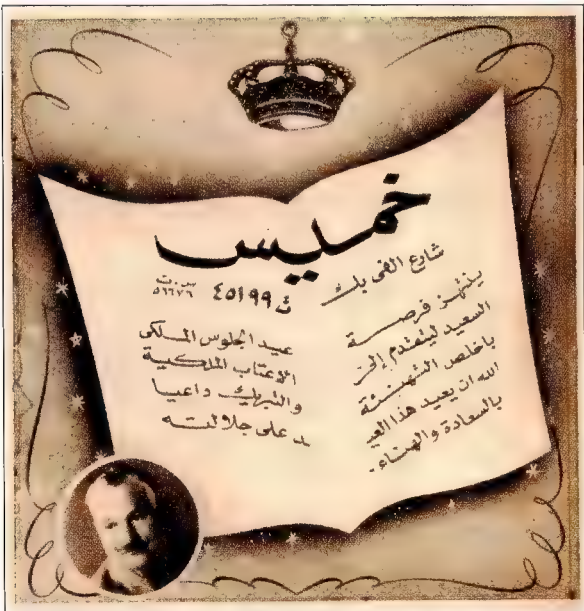 خميس
شارع الفى بك ت ٤٥١٩٩ س.ت ٥٦٦٧٦
ينتهز فرصة عيد الجلوس الملكى
السعيد ليتقدم إلى الاعتاب الملكية
باخلص التهنئة والتبريك داعيا
الله ان يعيد هذا العيد على جلالته
بالسعادة والهناء.